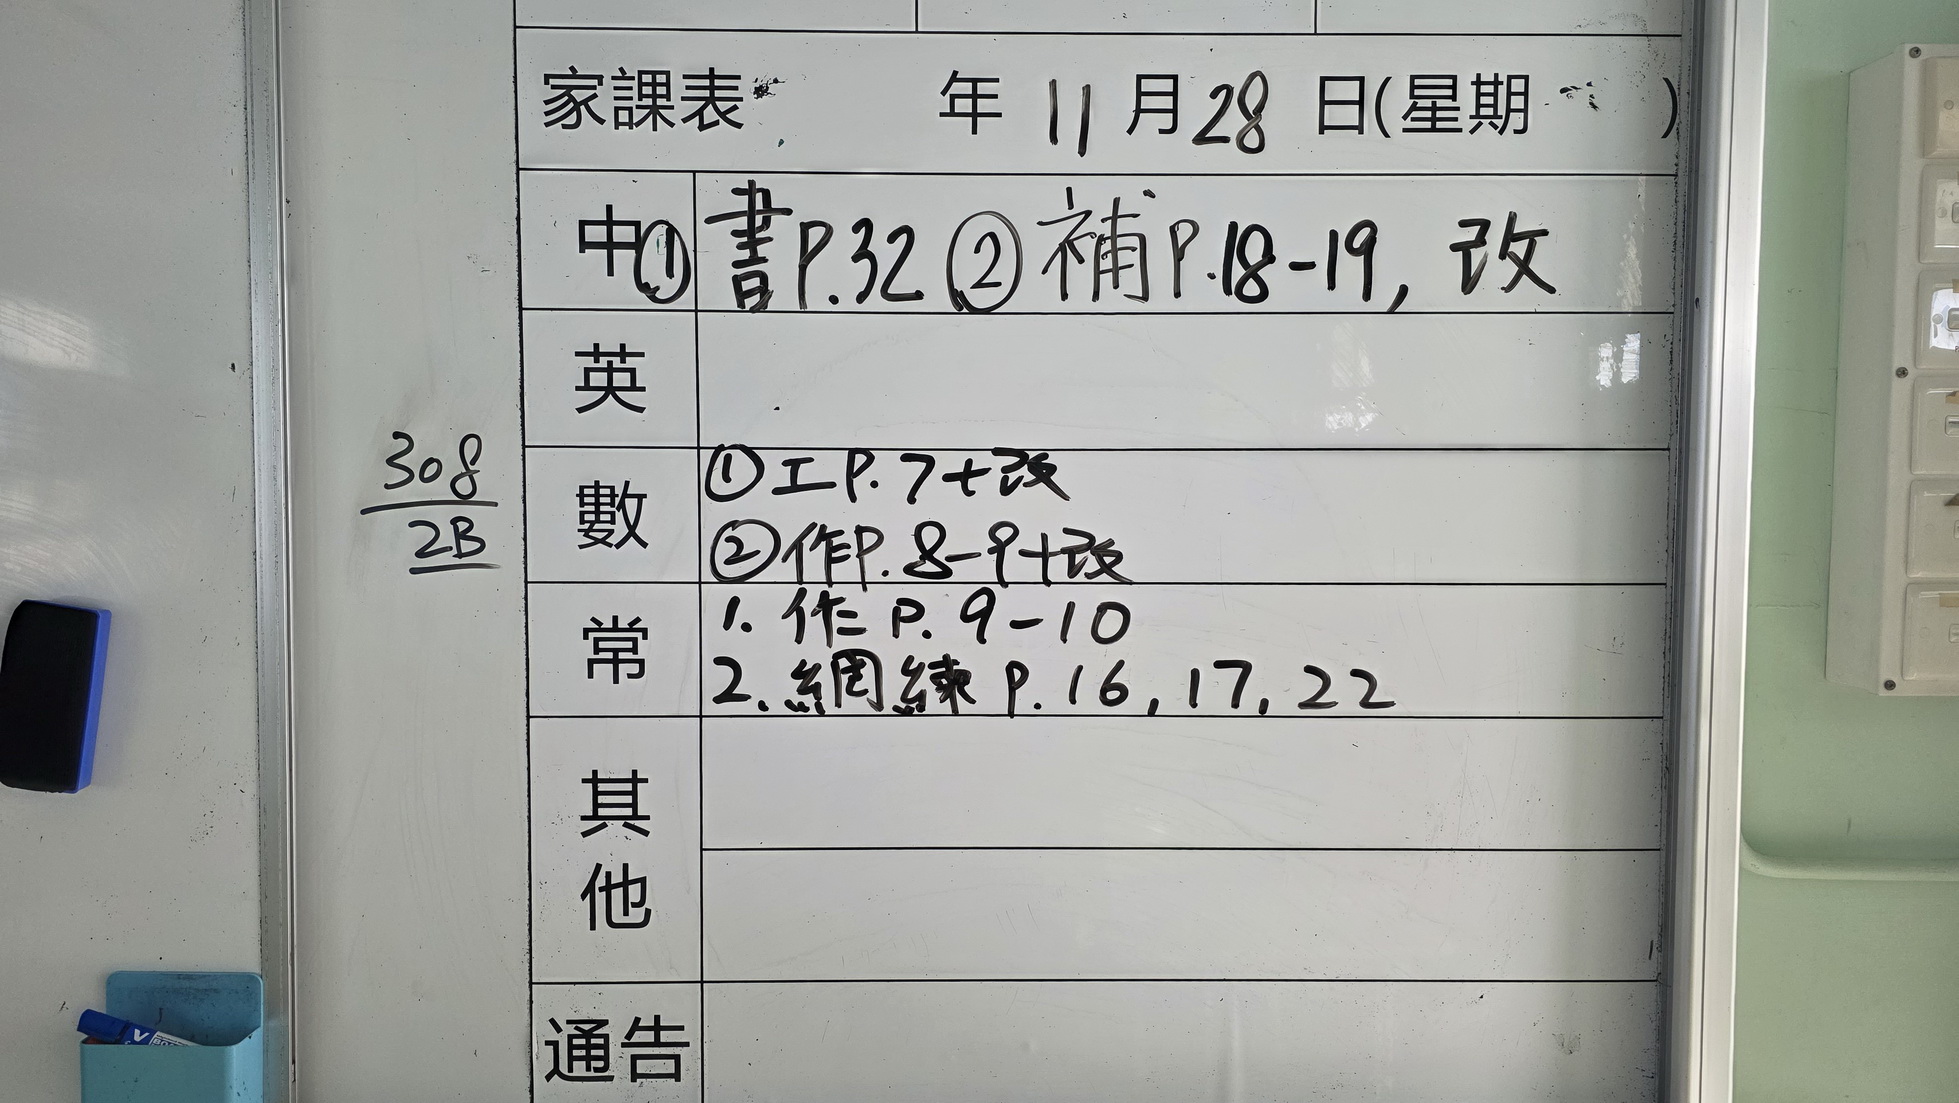 家課表 年 11 月 28 日(星期 )
中 ① 書P.32 ② 補P.18-19, 改
英
308
2B
數
① 工P.7+改
② 作P.8-9+改
常
1. 作 P.9-10
2. 網練 P.16, 17, 22
其他
通告